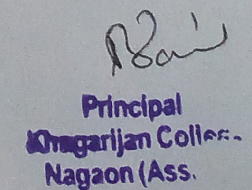 Principal
Khagarijan College
Nagaon (Ass.